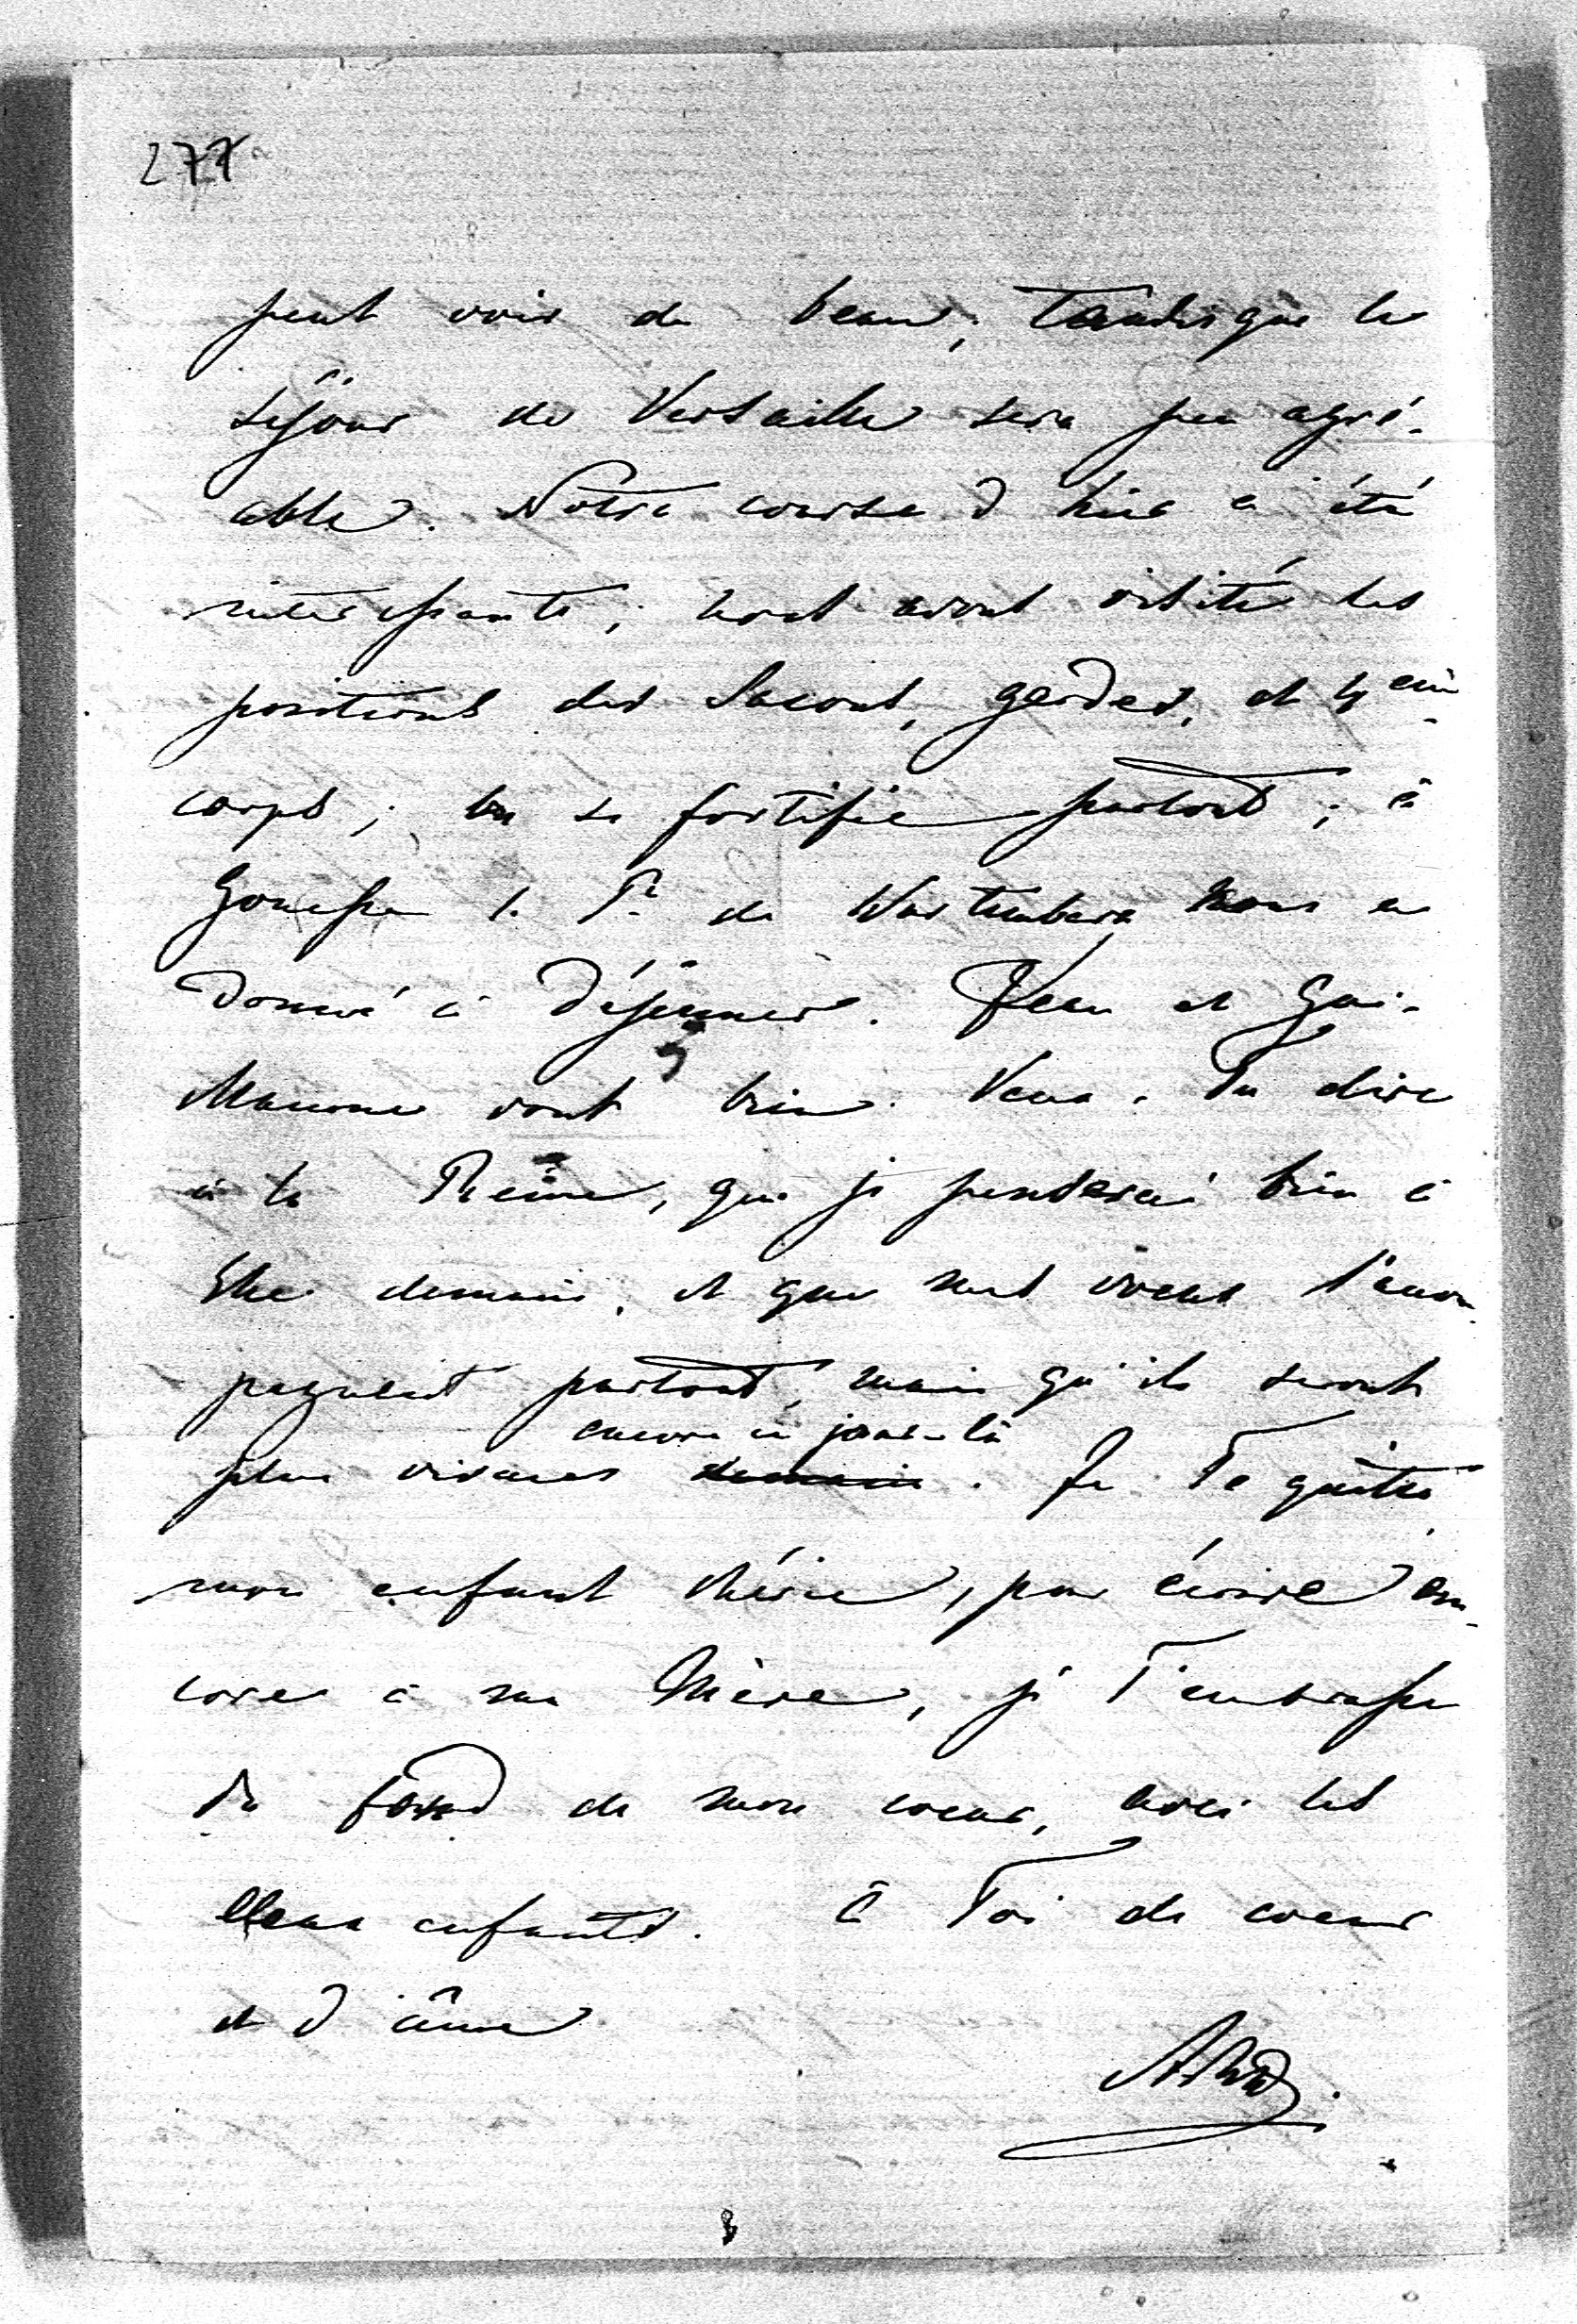 277
peut voir du beau; Tandis que le
séjour de Versailles sera peu agré-
able. Notre course d'hier a été
intéressante; nous avons visité les
positions des Saxons, gardes, et 4 eme
corps; on se fortifie partout; à
Gonesse l. Pce de Wurtemberg nous a
donné à déjeuner. et Gui-
vont bien. Veux-Tu dire
à la Reine, que je penserai bien à
Elle demain, et que mes voeux l'accom-
pagnent partout, mais qu'ils seront
encore ce jour-là
plus vivaces demain. Je Te quitte
mon enfant chérie, pour écrire en-
core à ma Mère, je T'embrasse
du fond de mon coeur, avec les
deux enfants. à Toi de coeur
et d'âme